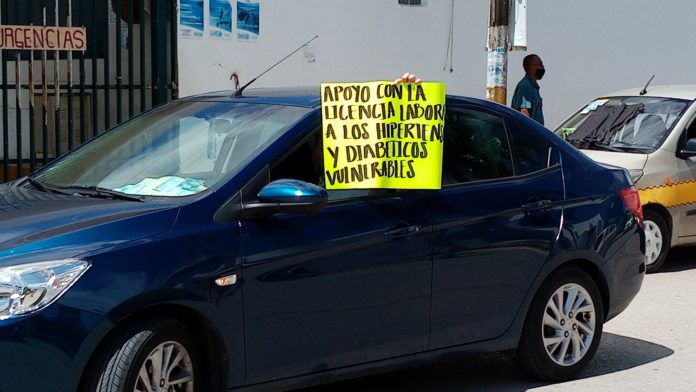 URGENCIAS
APOYO CON LA
LICENCIA LABOR
A LOS HIPERTENS
Y DIABETICOS
VULNERABLES